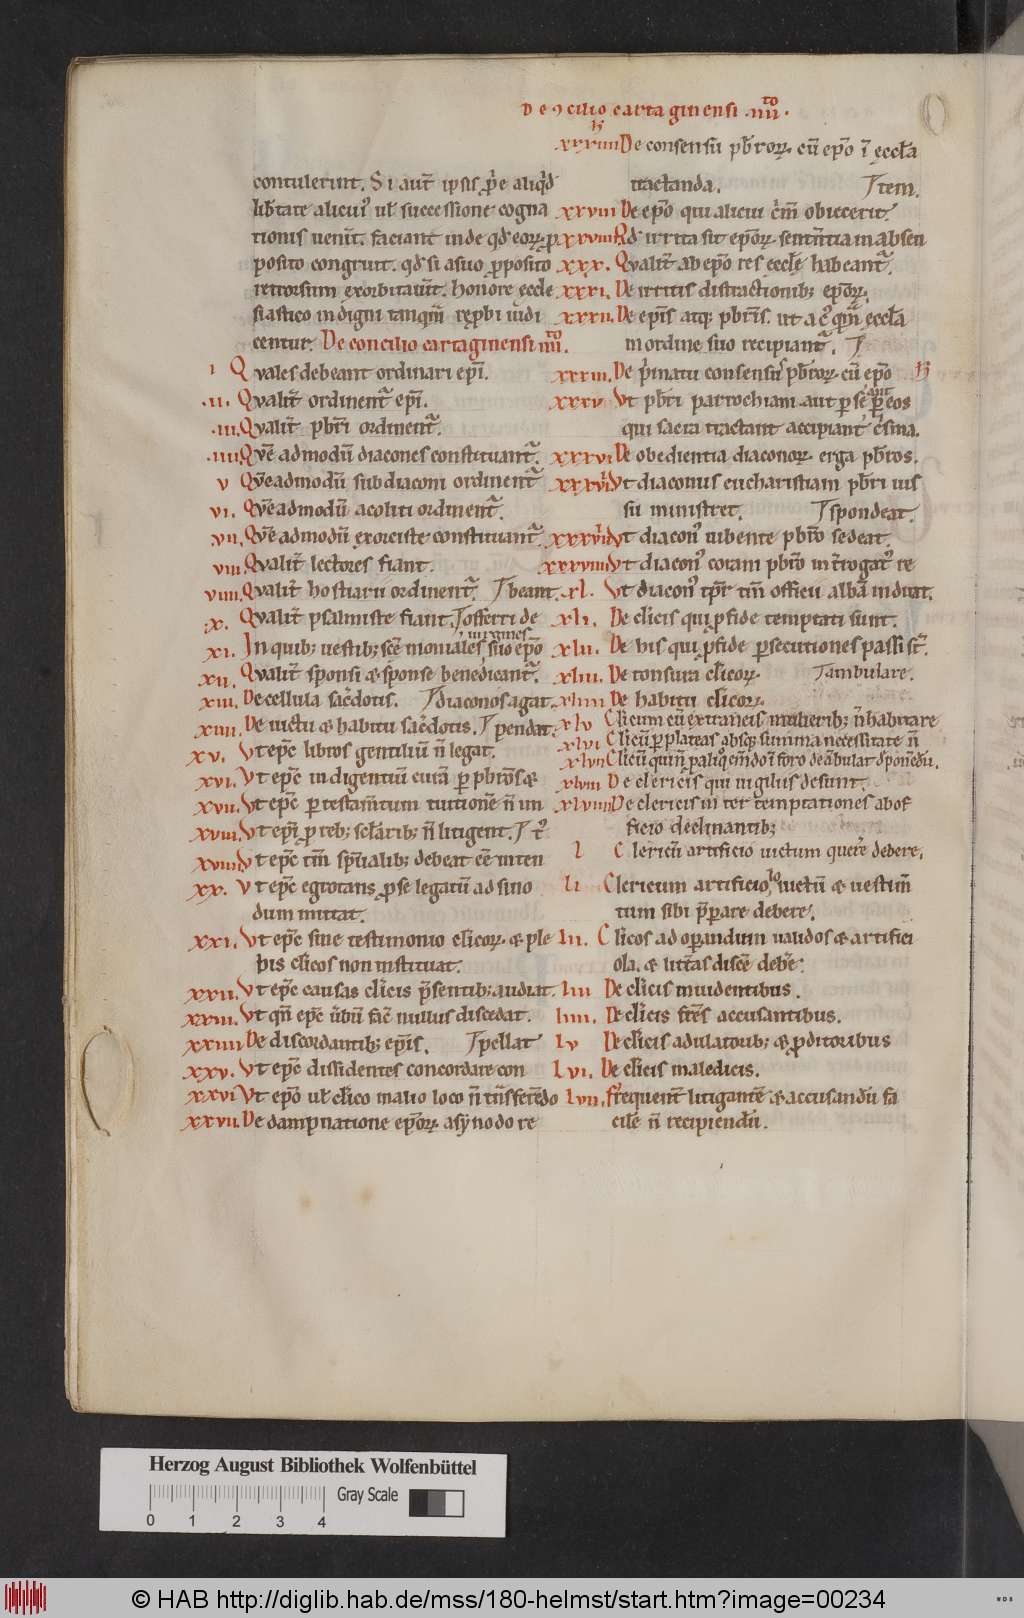 De ↄcilio cartaginensi .iiii.to
contulerunt. Si aut̄ ipsis ꝓpe aliq'd
lib̄tate alicui' ul' successione cogna
tionis uenit̄. faciant inde qd' eoꝝ ꝓ
posito congruit. qd' si a suo ꝓposito
retrorsum exorbitauer̄t. honore eccle
siastico indigni tanquā rep̄bi iudi
centur. De concilio cartaginensi iiii.to
i Quales debeant ordinari ep̄i.
.ii. Qualit̄ ordinent' ep̄i.
.iii. Qualit̄ pb̄ri ordinent'.
.iiii. Quē admodū diacones constituant'.
v Quēadmodū subdiaconi ordinent'
vi. Quēadmodū acoliti ordinent'.
.vii. Quē admodū exorciste constituant'.
viii. Qualit̄ lectores fiant.
viiii. Qualit̄ hostiarii ordinent'. beant.
.x. Qualit̄ psalmiste fiant. offerri de
uirgines
xi. In quib; uestib; scē moniales suo ep̄o
xii. Qualit̄ sponsi & sponse benedicant'.
xiii. De cellula sac̄dotis. diaconos agat.
xiiii. De uictu & habitu sac̄dotis. pendat.
xv. Vt ep̄c libros gentiliū n̄ legat.
xvi. Vt ep̄c indigentiū curā ꝑ pb̄ros &
xvii. Vt ep̄c ꝑ testam̄tum tutionē n̄ im
xviii. Vt ep̄i ꝓ reb; sc̄larib; n̄ litigent.
xviiii. Vt ep̄c tm̄ sp̄ualib; debeat eē inten
xx. Vt ep̄c egrotans ꝓ se legatū ad sino
dum mittat.
xxi. Vt ep̄c sine testimonio cl'icoꝝ & ple
bis cl'icos non instituat.
xxii. Vt ep̄c causas cl'icis p̄sentib; audiat.
xxiii. Vt qn̄ ep̄c ūbū fac̄ nullus discedat.
xxiiii De discordantib; ep̄is. pellat
xxv. Vt ep̄c dissidentes concordare con
xxvi Vt ep̄o ul' cl'ico malio loco n̄ trās ferēdo
xxvii. De dampnatione ep̄oꝝ a synodo re
xxviii De consensu pb̄roꝝ. cū ep̄o ī eccl'a
tractanda. Item.
xxviii De ep̄o qui alicui c̄m̄ obiecerit.
xxviiii Qd' irrita sit ep̄oꝝ sentn̄tia in absen
xxx. Qualit̄ ab ep̄o res eccl'ē habeant'.
xxxi. De irritis distractionib; ep̄oꝝ.
xxxii. De ep̄is atq; pb̄ris. ut ad quā eccl'a
in ordine suo recipiant'.
xxxiii. De p'matu consensu pb̄roꝝ cū ep̄o
xxxv Vt pb̄ri parrochiam aut ꝑ se aut ꝑ eos
qui sacra tractant accipiant c̄sma.
xxxvi De obedientia diaconoꝝ erga pb̄ros.
xxxvii Vt diaconus eucharistiam pb̄ri ius
su ministret. spondeat.
xxxvii Vt diacon' iubente pb̄ro sedeat.
xxxviiii Vt diacon' coram pb̄ro int̄rogat' re
.xl. Vt diacon' tp̄r tm̄ officii albā induat.
xli. De cl'icis qui ꝓ fide temptati sunt.
xlii. De his qui ꝓ fide ꝑsecutiones passi st̄.
xliii. De tonsura cl'icoꝝ. ambulare.
xliiii De habitu cl'icoꝝ.
xlv Clicum cū extraneis mulierib; n̄ habitare
xlvi Clicū ꝑ plateas absq; summa necessitate n̄
xlvii Clicū qui n̄ ꝑ aliq' emdo ī foro deābulat deponēdū.
xlviii De clericis qui uigiliis desunt.
xlviiii De clericis in ter temptationes ab of
ficio declinantib;
l Clericū artificio uictum querere debere.
li Clericum artificiolo uictū & uestim̄
tum sibi p̄parare debere.
lii. Cl'icos ad oꝑandum ualidos & artifici
ola. & litt̄as discē debe'.
liii De cl'icis inuidentibus.
liiii. De cl'icis fr̄es accusantibus.
lv De cl'icis adulatorib; & ꝓditoribus
lvi. De cl'icis maledicis.
lvii. frequent̄ litigantē & accusandū fa
cilē n̄ recipiendū.
Herzog August Bibliothek Wolfenbüttel
Gray Scale
0 1 2 3 4
© HAB http://diglib.hab.de/mss/180-helmst/start.htm?image=00234